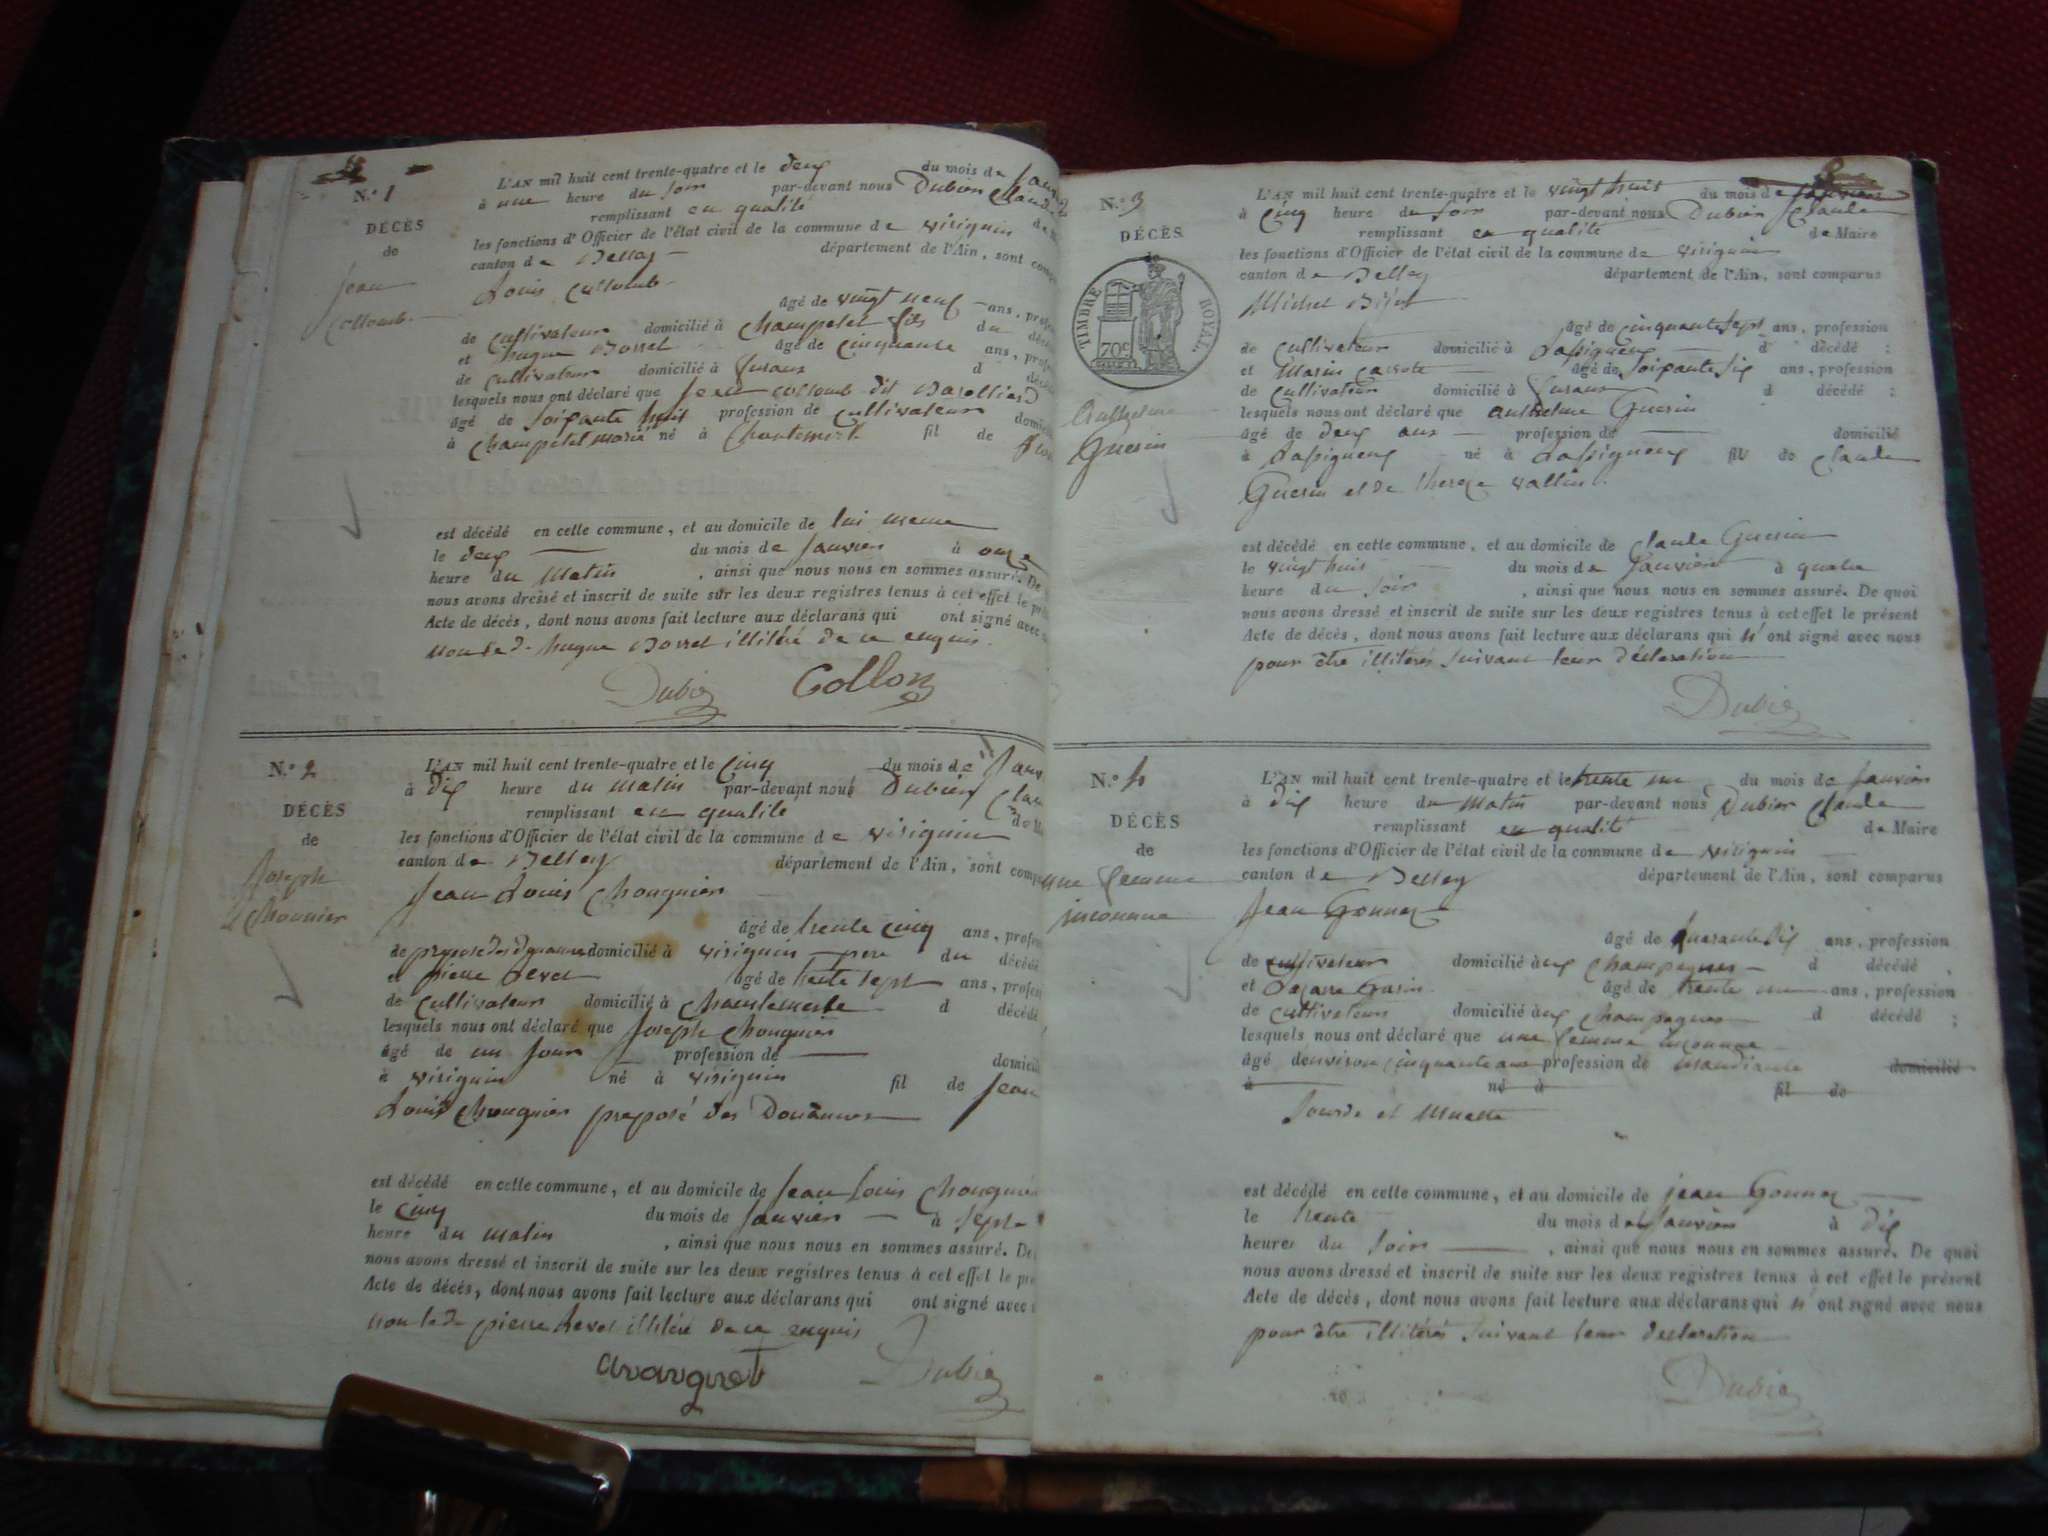 N.º 1
DÉCÈS
de
Jean
Collomb
L'AN mil huit cent trente-quatre et le deux du mois de
à une heure du soir par-devant nous Dubien Claude
remplissant en qualité
les fonctions d'Officier de l'état civil de la commune de virignin
canton de Belley département de l'Ain, sont
Louis Collomb
âgé de vingt neuf ans,
de cultivateur domicilié à Champetel fils du
et hugue Borret âgé de cinquante ans,
de cultivateur domicilié à d
lesquels nous ont déclaré que Jean collomb dit
âgé de soixante huit profession de cultivateur
à Champetel marié né à Chantemerle fil de
est décédé en cette commune, et au domicile de lui meme
le deux du mois de Janvier à onze
heure du Matin , ainsi que nous nous en sommes assuré. De
nous avons dressé et inscrit de suite sur les deux registres tenus à cet effet le
Acte de décès, dont nous avons fait lecture aux déclarans qui ont signé avec
non led. hugue Borret illitéré de ce enquis.
Dubien Collomb
N.º 2
DÉCÈS
de
Joseph
Chouguier
L'AN mil huit cent trente-quatre et le Cinq du mois de
à dix heure du matin par-devant nous Dubien
remplissant en qualité
les fonctions d'Officier de l'état civil de la commune de virignin
canton de Belley département de l'Ain, sont
Jean Louis Chouguier
âgé de trente cinq ans,
de preposé des douanes domicilié à virignin pere du décédé
et pierre âgé de trente sept ans,
de cultivateur domicilié à Chantemerle d décédé
lesquels nous ont déclaré que Joseph Chouguier
âgé de un jour profession de
à virignin né à virignin fil de Jean
Louis Chouguier preposé des Douannes
est décédé en cette commune, et au domicile de Jean Louis Chouguier
le cinq du mois de Janvier à sept
heure du matin , ainsi que nous nous en sommes assuré. De
nous avons dressé et inscrit de suite sur les deux registres tenus à cet effet le
Acte de décès, dont nous avons fait lecture aux déclarans qui ont signé avec
non led. pierre illitéré de ce enquis
Dubien
N.º 3
DÉCÈS
de
TIMBRE ROYAL.
70c
Anthelme
Guerin
L'AN mil huit cent trente-quatre et le vingt huit du mois de Janvier
à Cinq heure du soir par-devant nous Dubien Claude
remplissant en qualité de Maire
les fonctions d'Officier de l'état civil de la commune de virignin
canton de Belley département de l'Ain, sont comparus
Michel
âgé de cinquante sept ans, profession
de Cultivateur domicilié à d décédé ;
et Marin âgé de soixante six ans, profession
de cultivateur domicilié à d décédé ;
lesquels nous ont déclaré que anthelme Guerin
âgé de deux ans profession de domicilié
à né à fil de Claude
Guerin et de therese vallin.
est décédé en cette commune, et au domicile de Claude Guerin
le vingt huit du mois de Janvier à quatre
heure du soir , ainsi que nous nous en sommes assuré. De quoi
nous avons dressé et inscrit de suite sur les deux registres tenus à cet effet le présent
Acte de décès, dont nous avons fait lecture aux déclarans qui n'ont signé avec nous
pour être illiterés suivant leur déclaration
Dubien
N.º 4
DÉCÈS
de
une femme
inconnue
L'AN mil huit cent trente-quatre et le trente un du mois de Janvier
à dix heure du Matin par-devant nous Dubien Claude
remplissant en qualité de Maire
les fonctions d'Officier de l'état civil de la commune de virignin
canton de Belley département de l'Ain, sont comparus
Jean Gonnet
âgé de quarante six ans, profession
de cultivateur domicilié à d décédé
et âgé de trente un ans, profession
de cultivateur domicilié à d décédé ;
lesquels nous ont déclaré que une femme inconnue
âgé denviron cinquante ans profession de mandiante domicilié
à né à fil de
Sourde et Muette
est décédé en cette commune, et au domicile de jean Gonnet
le trente du mois de Janvier à dix
heures du soir , ainsi que nous nous en sommes assuré. De quoi
nous avons dressé et inscrit de suite sur les deux registres tenus à cet effet le présent
Acte de décès, dont nous avons fait lecture aux déclarans qui n'ont signé avec nous
pour être illitérés suivant leur declaration
Dubien